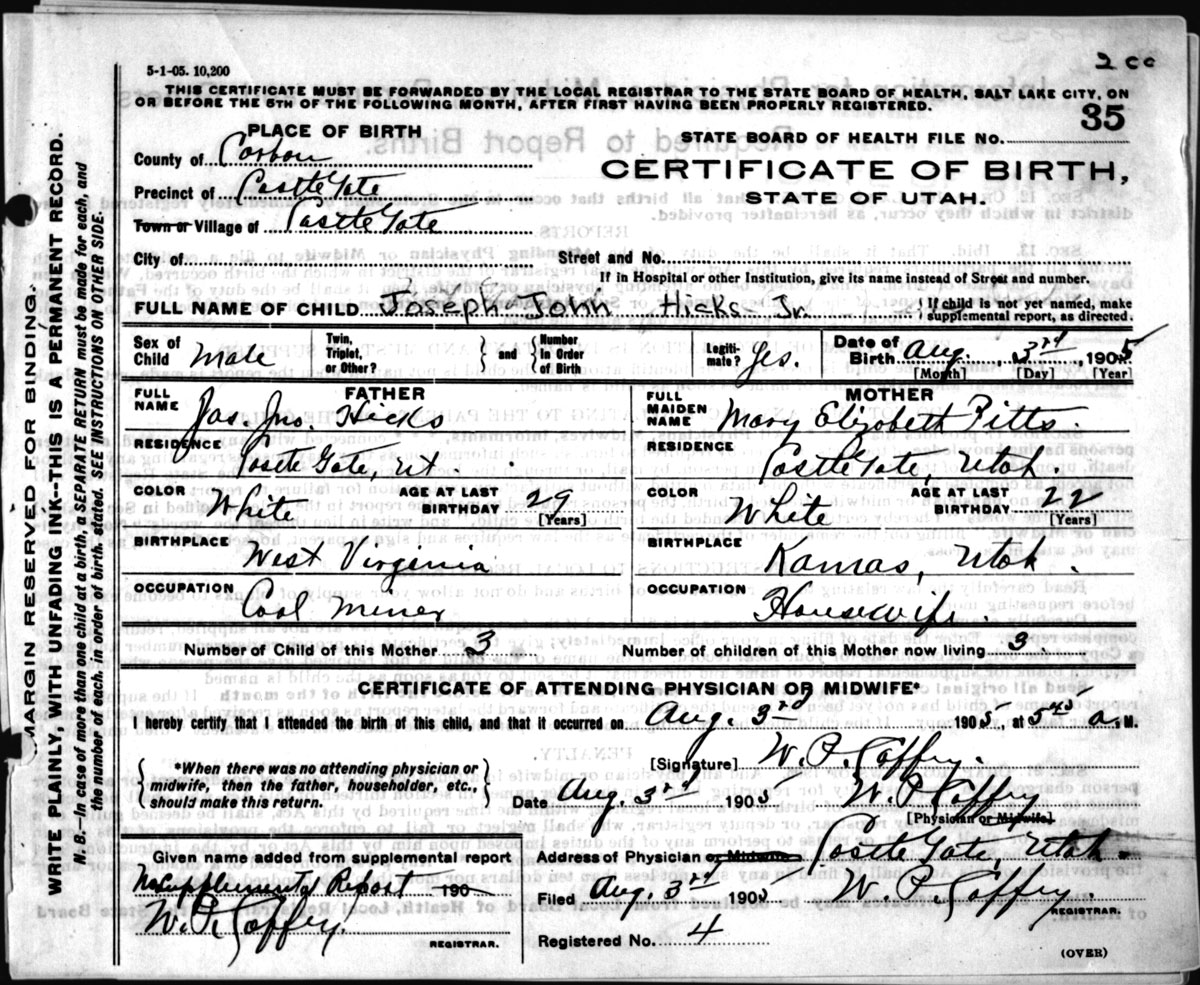 2 cc
5-1-05. 10,200
THIS CERTIFICATE MUST BE FORWARDED BY THE LOCAL REGISTRAR TO THE STATE BOARD OF HEALTH, SALT LAKE CITY, ON
OR BEFORE THE 5TH OF THE FOLLOWING MONTH, AFTER FIRST HAVING BEEN PROPERLY REGISTERED.
35
PLACE OF BIRTH
STATE BOARD OF HEALTH FILE No.
County of Carbon
CERTIFICATE OF BIRTH,
Precinct of Castle Gate
STATE OF UTAH.
Town or Village of Castle Gate
City of Street and No.
If in Hospital or other Institution, give its name instead of Street and number.
FULL NAME OF CHILD Joseph John Hicks Jr. { If child is not yet named, make supplemental report, as directed.
Sex of Child Male Twin, Triplet, or Other? } and { Number In Order of Birth Legiti-mate? Yes. Date of Birth Aug. 3rd, 1905
[Month] [Day] [Year]
FATHER MOTHER
FULL NAME Jas. Jno. Hicks FULL MAIDEN NAME Mary Elizabeth Pitts.
RESIDENCE Castle Gate, Ut. RESIDENCE Castle Gate, Utah.
COLOR White AGE AT LAST BIRTHDAY 29 [Years] COLOR White AGE AT LAST BIRTHDAY 22 [Years]
BIRTHPLACE West Virginia BIRTHPLACE Kamas, Utah.
OCCUPATION Coal Miner OCCUPATION Housewife.
Number of Child of this Mother 3 Number of children of this Mother now living 3.
CERTIFICATE OF ATTENDING PHYSICIAN OR MIDWIFE*
I hereby certify, that I attended the birth of this child, and that it occurred on Aug. 3rd 1905, at 5 45 a. M.
*When there was no attending physician or
midwife, then the father, householder, etc.,
should make this return.
[Signature] W. P. Caffey.
Date Aug. 3rd 1905 W. P. Caffey
[Physician or Midwife]
Given name added from supplemental report
No Supplemental Report 190
W. P. Caffey.
REGISTRAR.
Address of Physician or Midwife Castle Gate, Utah.
Filed Aug. 3rd 1905 W. P. Caffey
REGISTRAR.
Registered No. 4
(OVER)
MARGIN RESERVED FOR BINDING.
WRITE PLAINLY, WITH UNFADING INK--THIS IS A PERMANENT RECORD.
N. B.--In case of more than one child at a birth, a SEPARATE RETURN must be made for each, and
the number of each, in order of birth, stated. SEE INSTRUCTIONS ON OTHER SIDE.